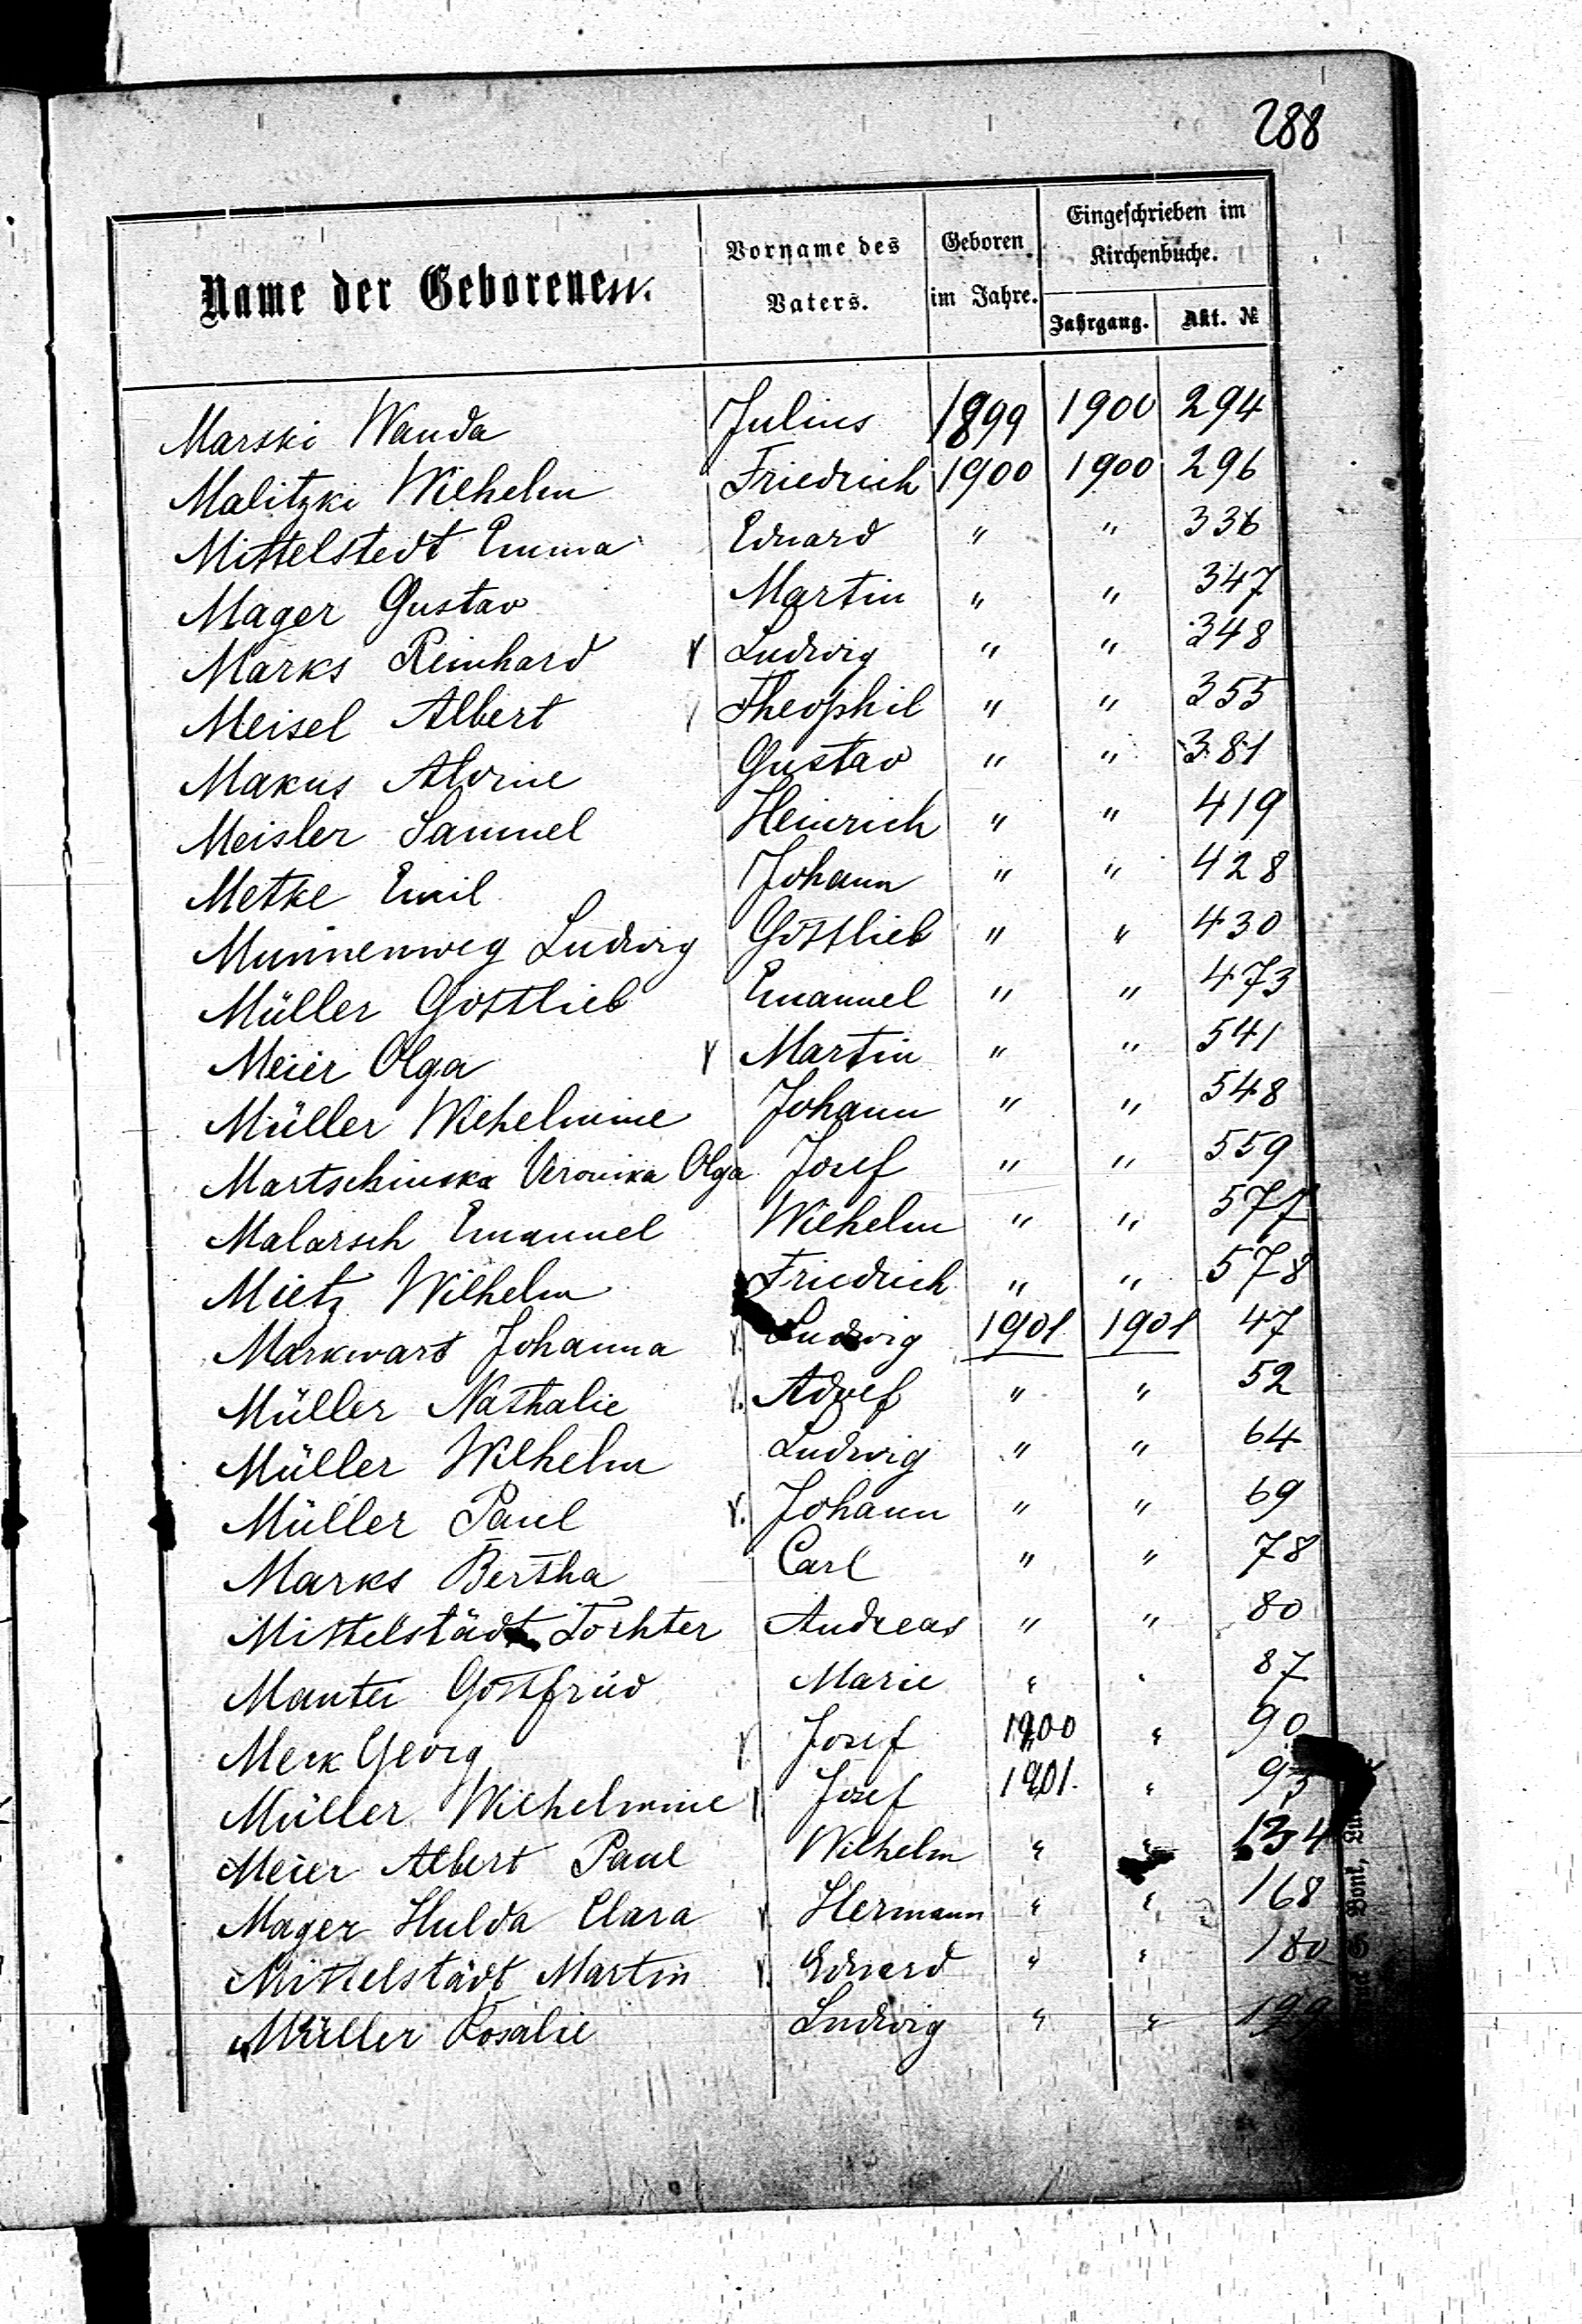 288
Name der Geborenen.
Vorname des Vaters.
Geboren im Jahre.
Eingeschrieben im Kirchenbuche.
Jahrgang. Akt. №
Marski Wanda Julius 1899 1900 294
Malitzki Wilhelm Friedrich 1900 1900 296
Mittelstedt Emma Eduard " " 336
Mager Gustav Martin " " 347
Marks Reinhard Ludwig " " 348
Meisel Albert Theophil " " 355
Makus Alvine Gustav " " 381
Meisler Samuel Heinrich " " 419
Metke Emil Johann " " 428
Munnenweg Ludwig Gottlieb " " 430
Müller Gottlieb Emanuel " " 473
Meier Olga Martin " " 541
Müller Wilhelmine Johann " " 548
Martschinska Veronika Olga Josef " " 559
Malarsch Emanuel Wilhelm " " 577
Mietz Wilhelm Friedrich " " 578
Markwart Johanna Ludwig 1901 1901 47
Müller Nathalie Adolf " " 52
Müller Wilhelm Ludwig " " 64
Müller Paul Johann " " 69
Marks Bertha Carl " " 78
Mittelstädt Tochter Andreas " " 80
Mantei Gottfried Marie " " 87
Merk Georg Josef 1900 " 90
Müller Wilhelmine Josef 1901. " 93
Meier Albert Paul Wilhelm " " 134
Mager Hulda Clara Hermann " " 168
Mittelstädt Martin Eduard " " 180
Müller Rosalie Ludwig " " 199